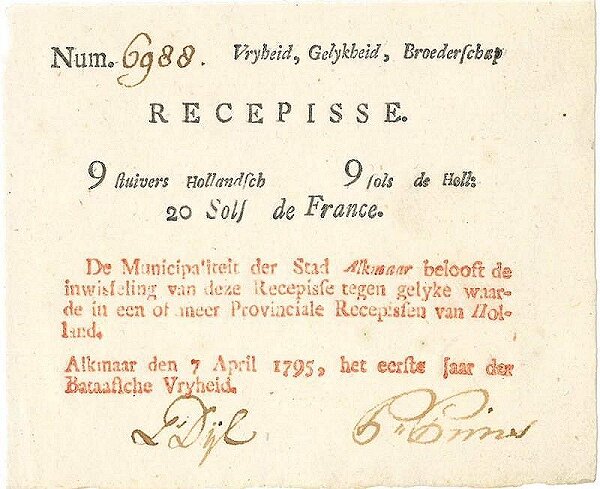 Num. 6988. Vryheid, Gelykheid, Broederſchap
RECEPISSE.
9 ſtuivers Hollandſch 9 ſols de Holl:
20 Solſ de France.
De Municipaliteit der Stad Alkmaar belooft de
inwiſſeling van deze Recepiſſe tegen gelyke waar-
de in een of meer Provinciale Recepiſſen van Hol-
land.
Alkmaar den 7 April 1795, het eerſte Jaar der
Bataafſche Vryheid.